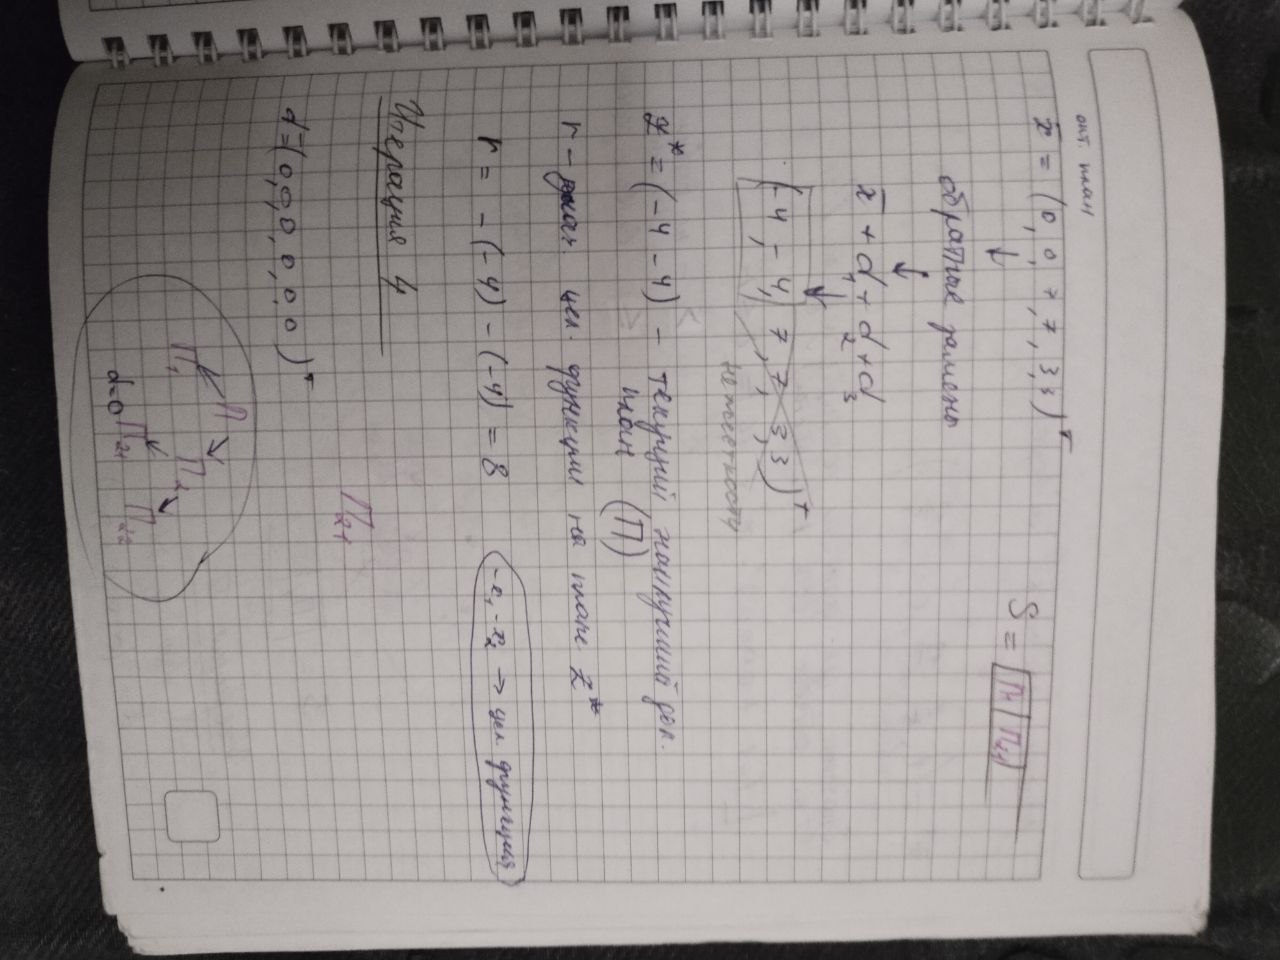 опт. план
x̄ = (0, 0, 7, 7, 3, 3)ᵀ
S = [П₁ | П₂₁]
↓
обратные замены
↓
x̄ + d₁ + d₂ + d₃
↓
(-4, -4, 7, 7, 3, 3)ᵀ
Z* = (-4 -4) - текущий наилучший доп.
план (П)
r - знач. цел. функции на плане Z*
r = -(-4) - (-4) = 8
-x₁ - x₂ → цел функция
Итерация 4
П₂₁
d = (0, 0, 0, 0, 0, 0)ᵀ
П
П₁ П₂
d=0 П₂₁ П₂₂